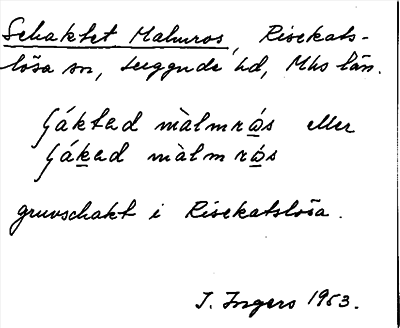 Schaktet Malmros, Risekats-
lösa sn, Luggude hd, Mhs län.
ʃáktad màlmrɷ́s eller
ʃákad màlmrɷ́s
gruvschakt i Risekatslösa.
I. Ingers 1953.